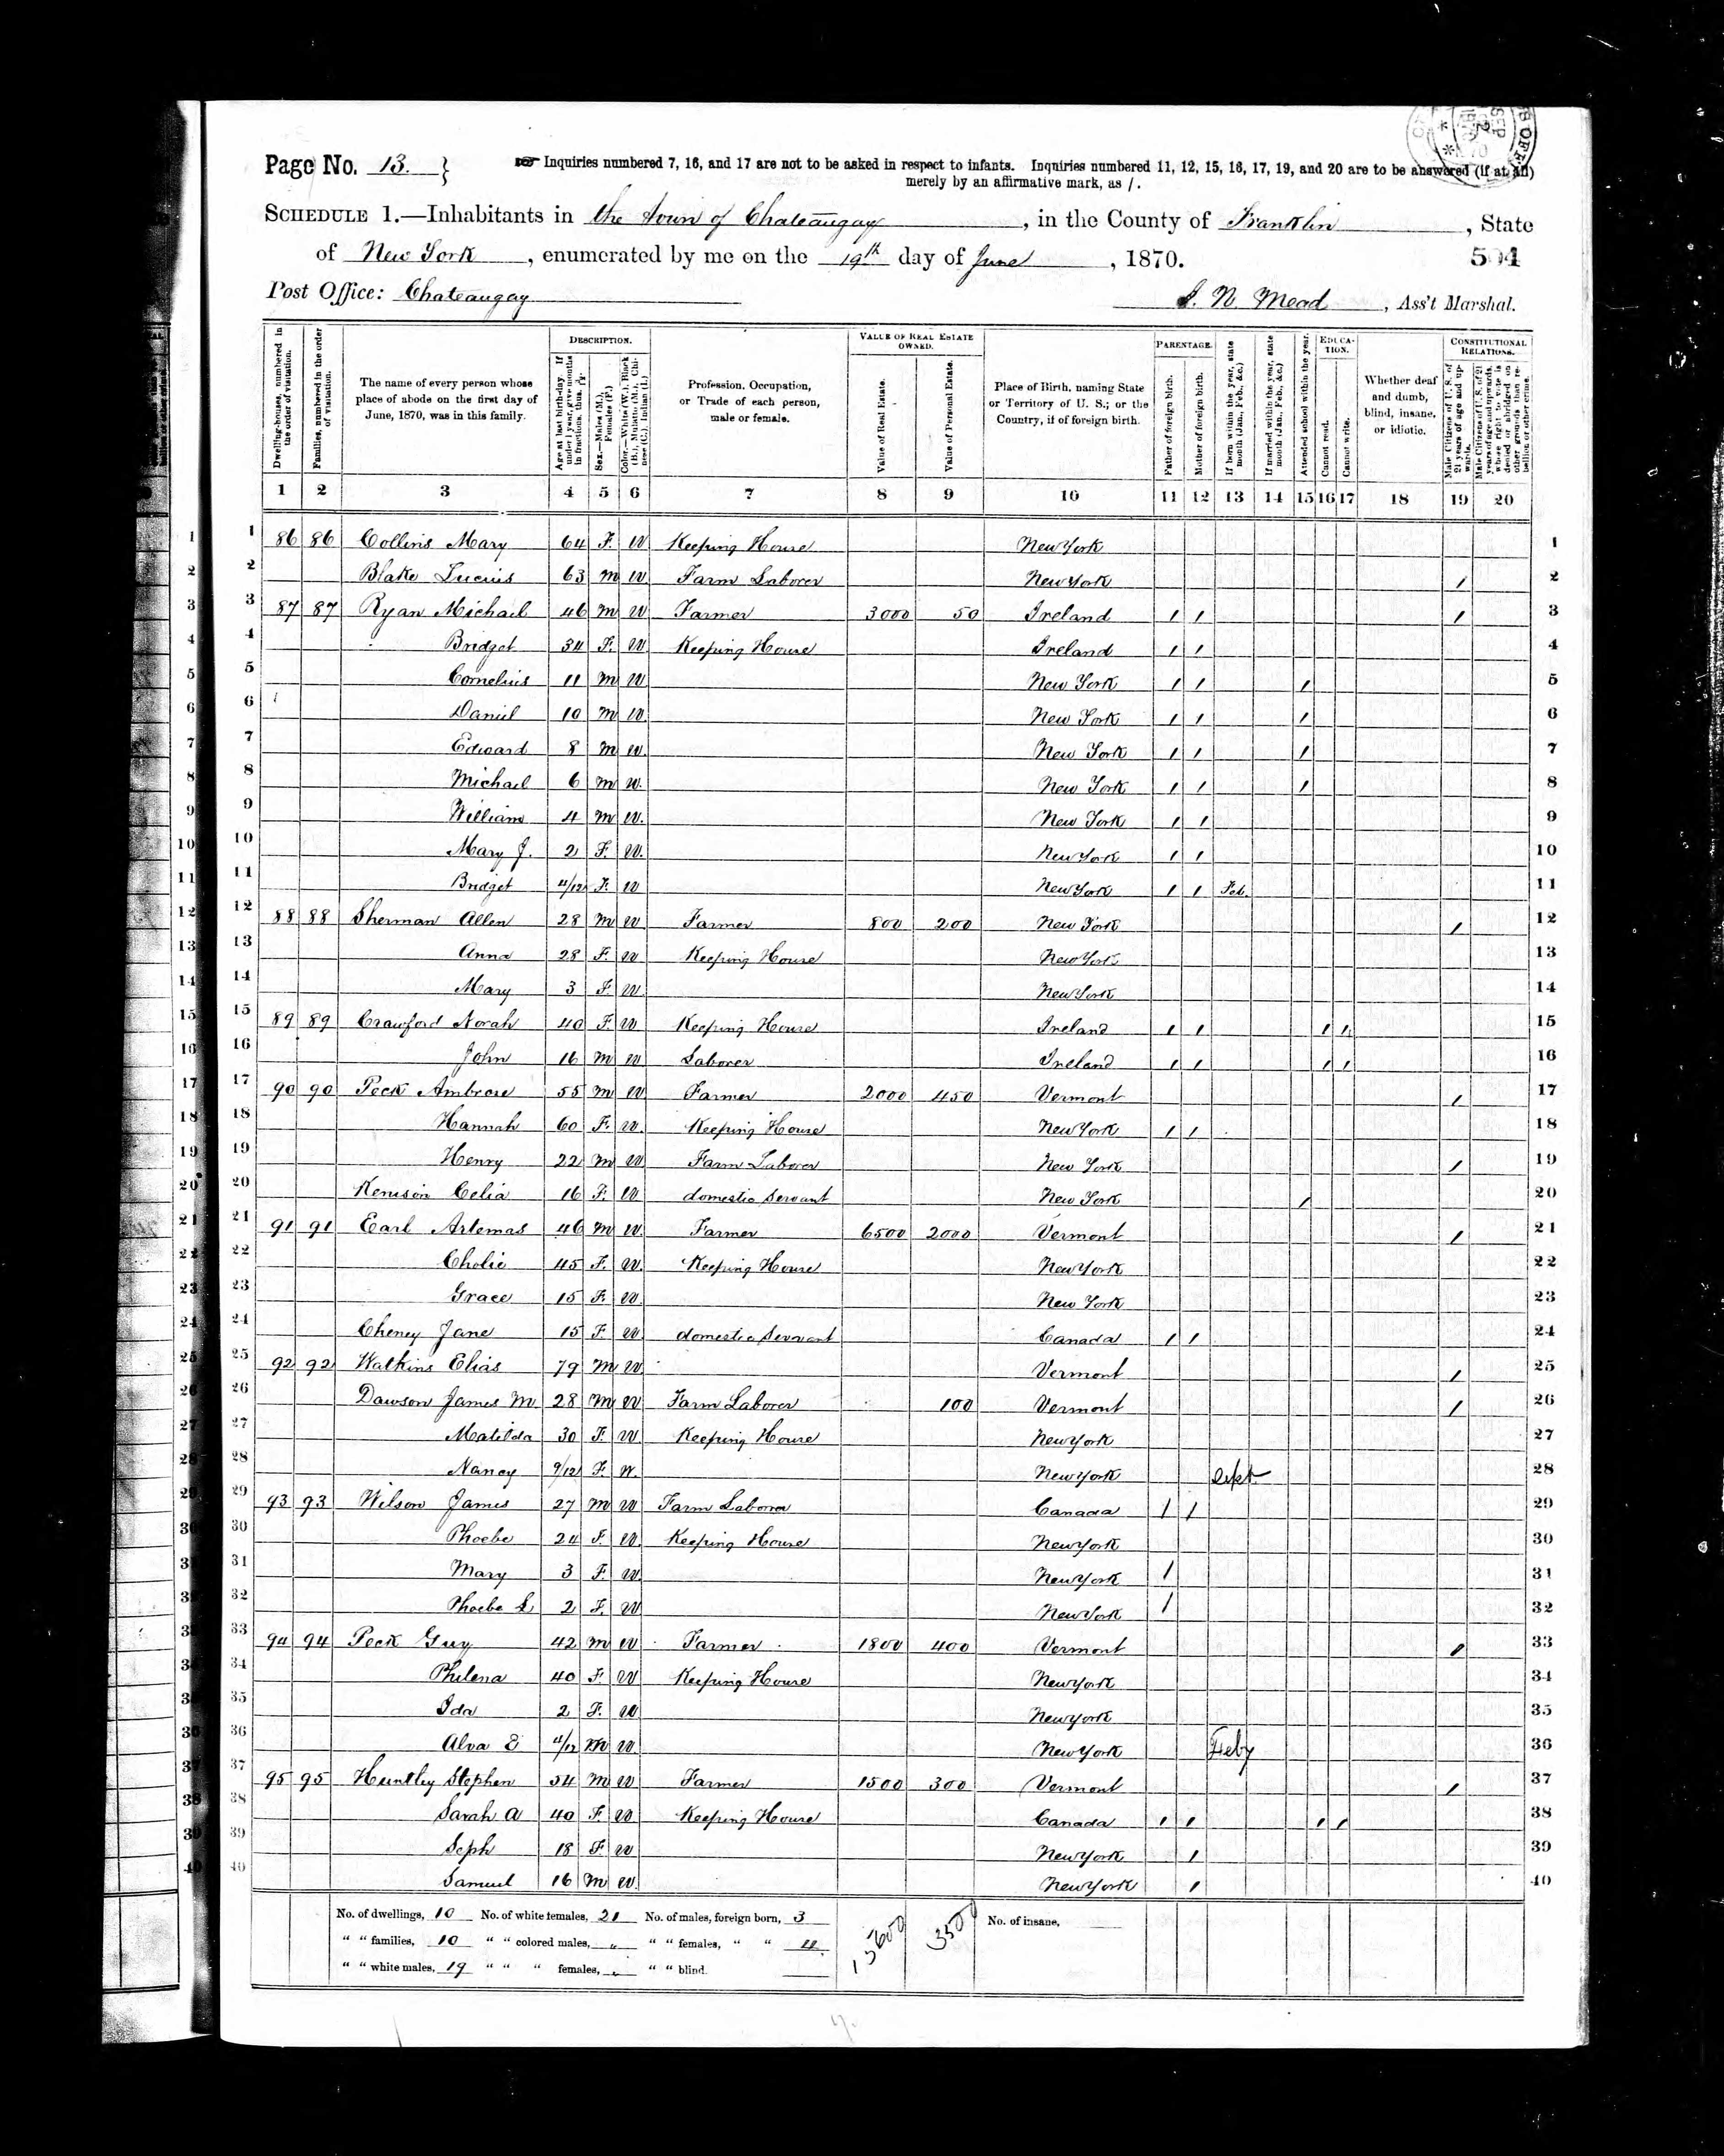 Page No. 13. }
Inquiries numbered 7, 16, and 17 are not to be asked in respect to infants. Inquiries numbered 11, 12, 15, 16, 17, 19, and 20 are to be answered (if at all)
merely by an affirmative mark, as /.
SCHEDULE 1.—Inhabitants in the town of Chateaugay, in the County of Franklin, State
of New York, enumerated by me on the 19th day of June, 1870. 504
Post Office: Chateaugay
S. N. Mead, Ass't Marshal.
Dwelling-houses, numbered in the order of visitation.
Families, numbered in the order of visitation.
The name of every person whose place of abode on the first day of June, 1870, was in this family.
DESCRIPTION.
Age at last birth-day. If under 1 year, give months in fractions, thus,
Sex.—Males (M.), Females (F.)
Color.—White (W.), Black (B.), Mulatto (M.), Chinese (C.), Indian (I.)
Profession, Occupation, or Trade of each person, male or female.
VALUE OF REAL ESTATE OWNED.
Value of Real Estate.
Value of Personal Estate.
Place of Birth, naming State or Territory of U. S.; or the Country, if of foreign birth.
PARENTAGE.
Father of foreign birth.
Mother of foreign birth.
If born within the year, state month (Jan., Feb., &c.)
If married within the year, state month (Jan., Feb., &c.)
Attended school within the year.
EDUCATION.
Cannot read.
Cannot write.
Whether deaf and dumb, blind, insane, or idiotic.
CONSTITUTIONAL RELATIONS.
Male Citizens of U. S. of 21 years of age and upwards.
Male Citizens of U. S. of 21 years of age and upwards, whose right to vote is denied or abridged on other grounds than rebellion or other crime.
1 2 3 4 5 6 7 8 9 10 11 12 13 14 15 16 17 18 19 20
1 86 86 Collins Mary 64 F. W Keeping House New York 1
2 Blake Lucius 63 M W. Farm Laborer New York / 2
3 87 87 Ryan Michael 46 M W. Farmer 3000 50 Ireland / / / 3
4 Bridget 34 F. W. Keeping House Ireland / / 4
5 Cornelius 11 M W. New York / / / 5
6 Daniel 10 M W. New York / / / 6
7 Edward 8 M W. New York / / / 7
8 Michael 6 M W. New York / / / 8
9 William 4 M W. New York / / 9
10 Mary J. 2 F. W. New York / / 10
11 Bridget 4/12 F. W New York / / Feb. 11
12 88 88 Sherman Allen 28 M W Farmer 800 200 New York / 12
13 Anna 28 F. W Keeping House New York 13
14 Mary 3 F W. New York 14
15 89 89 Crawford Norah 40 F W Keeping House Ireland / / / / 15
16 John 16 M W Laborer Ireland / / / / 16
17 90 90 Peck Ambrose 55 M W Farmer 2000 450 Vermont / 17
18 Hannah 60 F. W. Keeping House New York / / 18
19 Henry 22 M W Farm Laborer New York / 19
20 Kenison Celia 16 F. W domestic Servant New York / 20
21 91 91 Earl Artemas 46 M W. Farmer 6500 2000 Vermont / 21
22 Cholie 45 F. W. Keeping House New York 22
23 Grace 15 F. W. New York 23
24 Cheney Jane 15 F W domestic Servant Canada / / 24
25 92 92 Watkins Elias 79 M W Vermont / 25
26 Dawson James M 28 M W Farm Laborer 100 Vermont / 26
27 Matilda 30 F. W. Keeping House New York 27
28 Nancy 9/12 F. W. New York Sept 28
29 93 93 Wilson James 27 M W Farm Laborer Canada / / 29
30 Phoebe 24 F. W. Keeping House New York 30
31 Mary 3 F. W. New York / 31
32 Phoebe L 2 F. W New York / 32
33 94 94 Peck Guy 42 M W Farmer 1800 400 Vermont / 33
34 Philena 40 F. W Keeping House New York 34
35 Ida 2 F. W New York 35
36 Alva E 4/12 M W. New York Feby 36
37 95 95 Huntley Stephen 54 M W Farmer 1500 300 Vermont / 37
38 Sarah A 40 F. W Keeping House Canada / / / / 38
39 Seph 18 F W New York / 39
40 Samuel 16 M W. New York / 40
No. of dwellings, 10 No. of white females, 21 No. of males, foreign born, 3 15600 3500 No. of insane,
" " families, 10 " " colored males, " " " females, " " 4
" " white males, 19 " " " females, " " " blind.